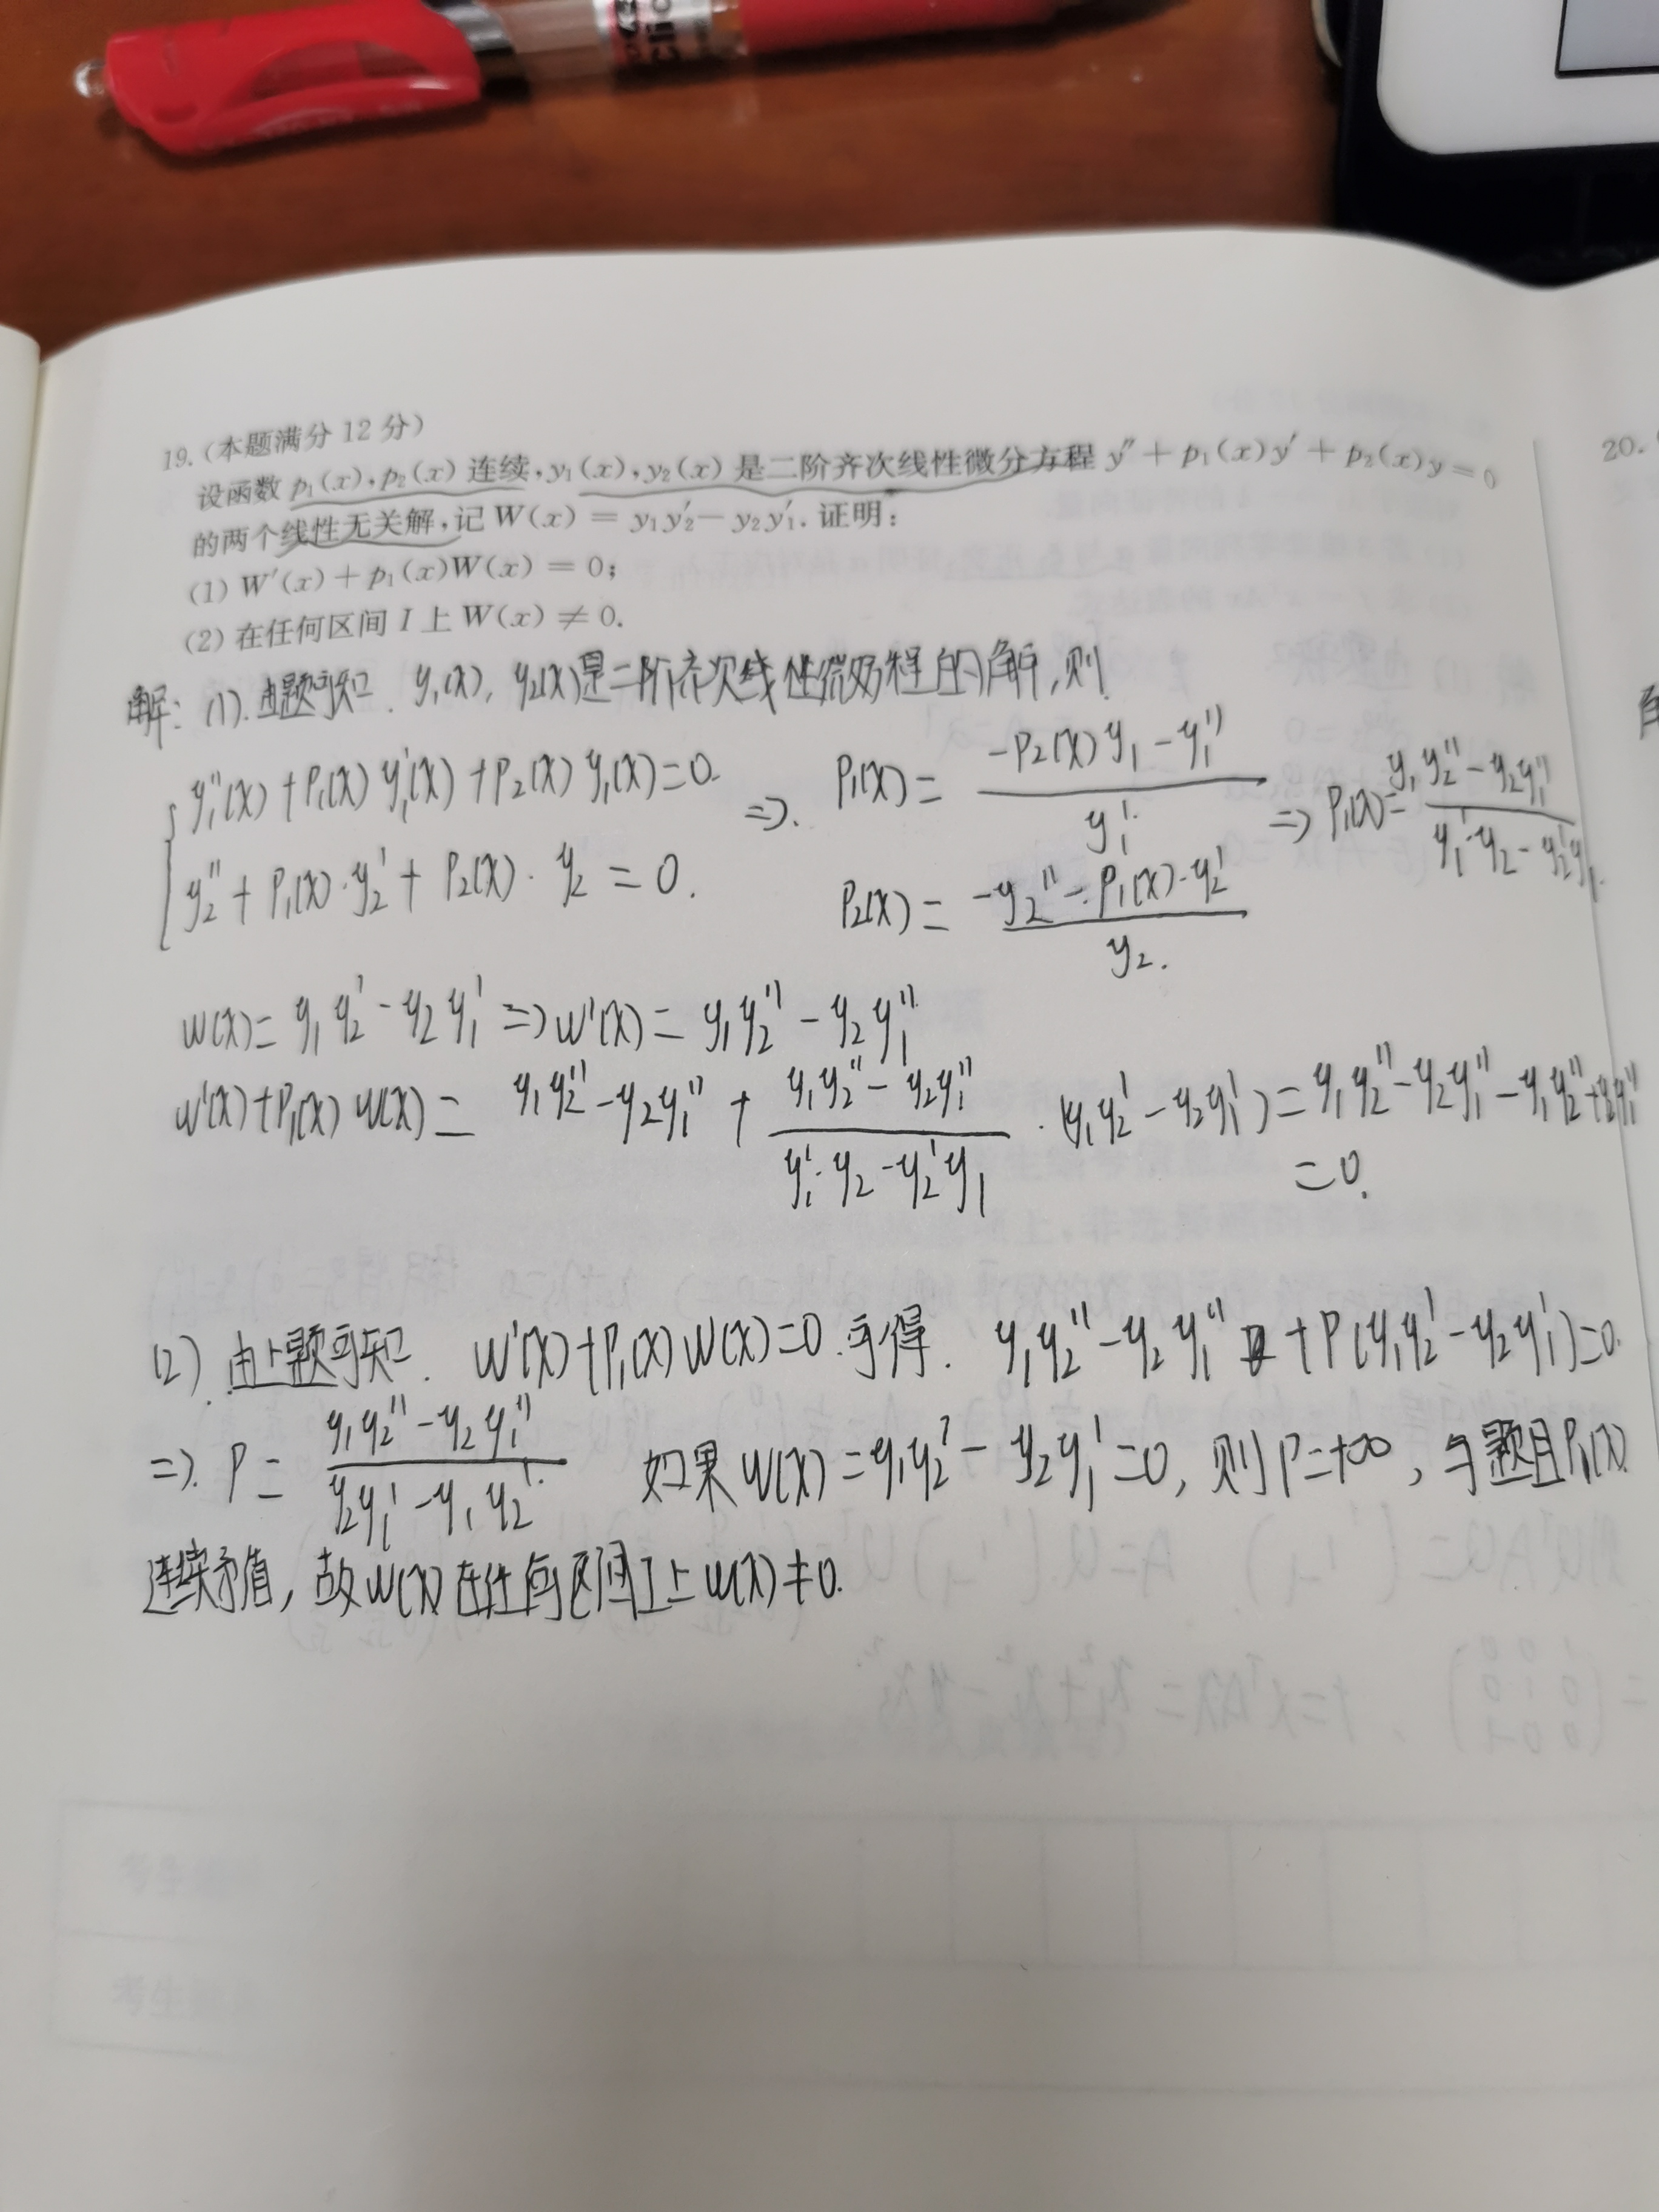 clic
19.(本题满分12分)
设函数 p₁(x),p₂(x) 连续,y₁(x),y₂(x) 是二阶齐次线性微分方程 y″ + p₁(x)y′ + p₂(x)y = 0
的两个线性无关解,记 W(x) = y₁y₂′ − y₂y₁′. 证明:
(1) W′(x) + p₁(x)W(x) = 0;
(2) 在任何区间 I 上 W(x) ≠ 0.
20.
解: (1).由题可知. y₁(x), y₂(x)是二阶齐次线性微分方程的解,则
{ y₁″(x) + P₁(x) y₁′(x) + P₂(x) y₁(x) = 0. ⇒. P₁(x) = (−P₂(x) y₁ − y₁″) / y₁′. ⇒ P₁(x) = (y₁y₂″ − y₂y₁″) / (y₁′·y₂ − y₂′y₁).
y₂″ + P₁(x)·y₂′ + P₂(x)· y₂ = 0. P₂(x) = (−y₂″ − P₁(x)·y₂′) / y₂.
W(x) = y₁y₂′ − y₂y₁′ ⇒ W′(x) = y₁y₂″ − y₂y₁″
W′(x) + P₁(x) W(x) = y₁y₂″ − y₂y₁″ + (y₁y₂″ − y₂y₁″) / (y₁′·y₂ − y₂′y₁) · (y₁y₂′ − y₂y₁′) = y₁y₂″ − y₂y₁″ − y₁y₂″ + y₂y₁″
= 0.
(2). 由上题可知. W′(x) + P₁(x) W(x) = 0. 可得. y₁y₂″ − y₂y₁″ + P(y₁y₂′ − y₂y₁′) = 0.
⇒. P = (y₁y₂″ − y₂y₁″) / (y₂y₁′ − y₁y₂′. ) 如果 W(x) = y₁y₂′ − y₂y₁′ = 0, 则 P = +∞, 与题目P₁(x)
连续矛盾, 故W(x)在任何区间I上 W(x) ≠ 0.